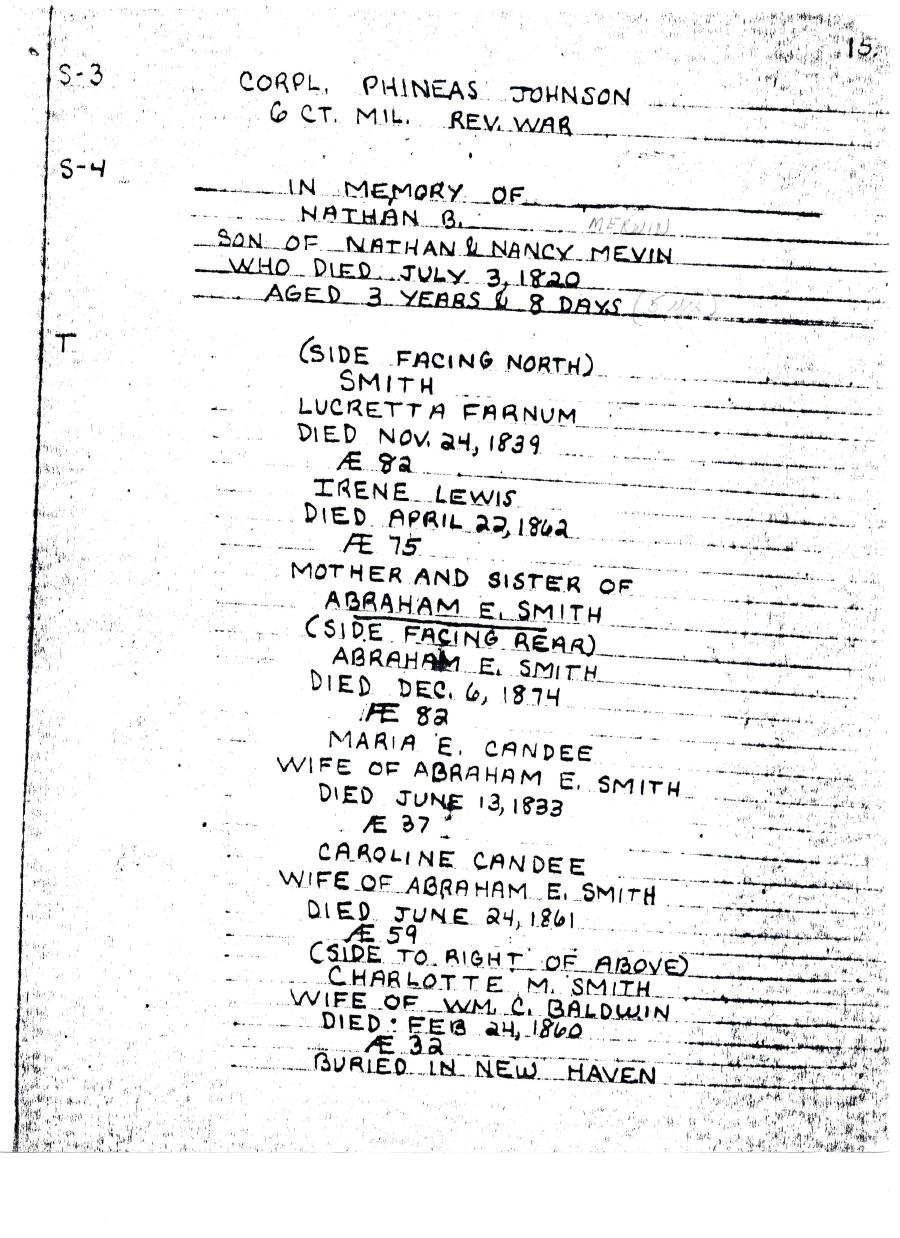 15.
S-3 CORPL. PHINEAS JOHNSON
6 CT. MIL. REV. WAR
S-4
IN MEMORY OF
NATHAN B. MERWIN
SON OF NATHAN & NANCY MEVIN
WHO DIED JULY 3, 1820
AGED 3 YEARS & 8 DAYS
T
(SIDE FACING NORTH)
SMITH
LUCRETTA FARNUM
DIED NOV. 24, 1839
Æ 82
IRENE LEWIS
DIED APRIL 22, 1862
Æ 75
MOTHER AND SISTER OF
ABRAHAM E. SMITH
(SIDE FACING REAR)
ABRAHAM E. SMITH
DIED DEC. 6, 1874
Æ 82
MARIA E. CANDEE
WIFE OF ABRAHAM E. SMITH
DIED JUNE 13, 1833
Æ 37
CAROLINE CANDEE
WIFE OF ABRAHAM E. SMITH
DIED JUNE 24, 1861
Æ 59
(SIDE TO RIGHT OF ABOVE)
CHARLOTTE M. SMITH
WIFE OF WM. C. BALDWIN
DIED: FEB 24, 1860
Æ 32
BURIED IN NEW HAVEN